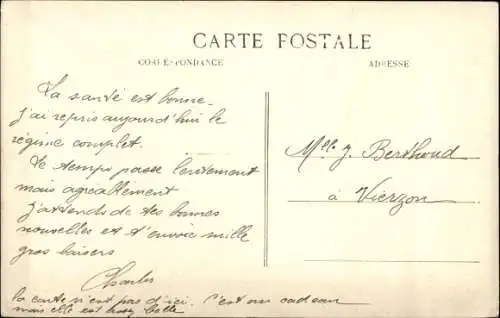 CARTE POSTALE
CORRESPONDANCE
ADRESSE
La santé est bonne.
j'ai repris aujourd'hui le
régime complet.
Le temps passe lentement
mais agréablement
J'attends de tes bonnes
nouvelles et t'envoie mille
gros baisers
Charles
la carte n'est pas d'ici. C'est un cadeau
mais elle est belle
Mlle J. Berthoud
à Vierzon